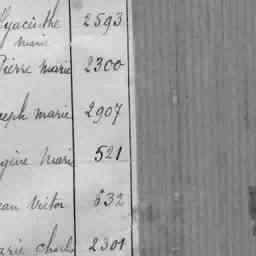 Hyacinthe 2593
marie
Pierre Marie 2300
seph marie 2907
gène Marie 521
ean Victor 632
arie Charles 2301